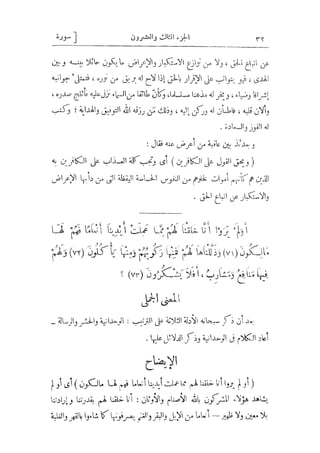 ٣٢ الجزء الثالث والعشرون [ سورة
عن اتباع الحق ، ولا من نوازع الاستكبار والإعراض ما يكون حائلا بينه وبين
الهدى ، فهو يتواثب على الإقرار بالحق إذا لاح له بريق من نوره ، فتمتلئ جوانبه
إشراقا وضياء ، ويخر له مذعنا مستسلما، وكأن طائفا من السماء نزل عليه فأثلج صدره ،
وألان قلبه ، فاطمأن له وركن إليه ، وذلك من رزقه الله التوفيق والهداية ؛ وكتب
له الفوز والسعادة .
وحينئذ بين عاقبة من أعرض عنه فقال :
( ويحق القول على الكافرين ) أى وتجب كلمة العذاب على الكافرين به
الذين هم كأنهم أموات لخلوهم من النفوس الحساسة اليقظة التى من دأبها الإعراض
والاستكبار عن اتباع الحق .
أولم يروا أنا خلقنا لهم مما عملت أيدينا أنعاما فهم لها
مالكون (٧١) وذللناها لهم فمنها ركوبهم ومنها يأكلون (٧٢) ولهم
فيها منافع ومشارب ، أفلا يشكرون (٧٣) ؟
المعنى الجملى
بعد أن ذكر سبحانه الأدلة الثلاثة على الترتيب : الوحدانية والحشر والرسالة ــ
أعاد الكلام فى الوحدانية وذكر الدلائل عليها .
الإيضاح
( أو لم يروا أنا خلقنا لهم مما عملت أيدينا أنعاما فهم لها مالكون ) أى أو لم
يشاهد هؤلاء المشركون بالله الأصنام والأوثان : أنا خلقنا لهم بقدرتنا وإرادتنا
بلا معين ولا ظهير ــ أنعاما من الإبل والبقر والغنم يصرفونها كما شاءوا بالقهر والغلبة